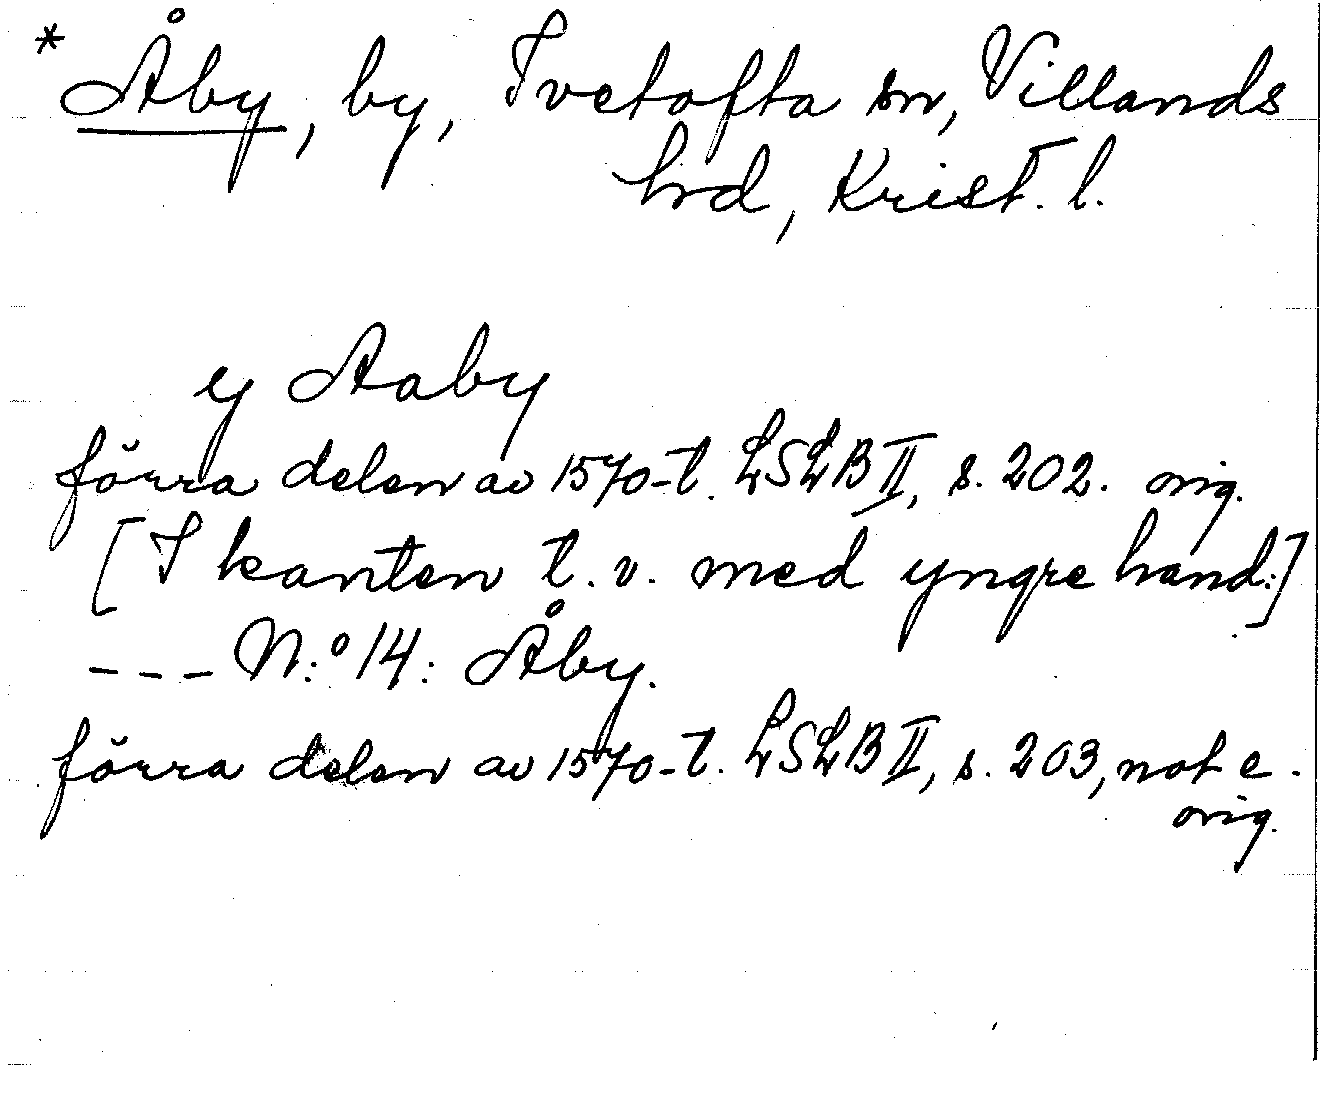 * Åby, by, Ivetofta sn, Villands
hrd, Krist. l.
y Aaby
förra delen av 1570-t. LSLB II, s. 202. orig.
[I kanten t. v. med yngre hand:]
--- N:o 14: Åby.
förra delen av 1570-t. LSLB II, s. 203, not e.
orig.